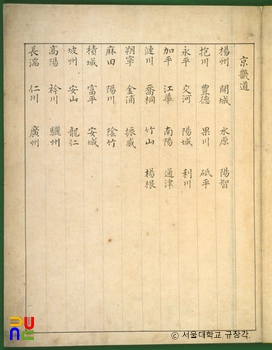 京畿道
楊州 開城 水原 陽智
抱川 豊德 果川 砥平
永平 交河 陽城 利川
加平 江華 南陽 通津
漣川 喬桐 竹山 楊根
朔寧 金浦 振威
麻田 陽川 陰竹
積城 富平 安城
坡州 安山 龍仁
高陽 衿川 驪州
長湍 仁川 廣州
ⓒ 서울대학교 규장각